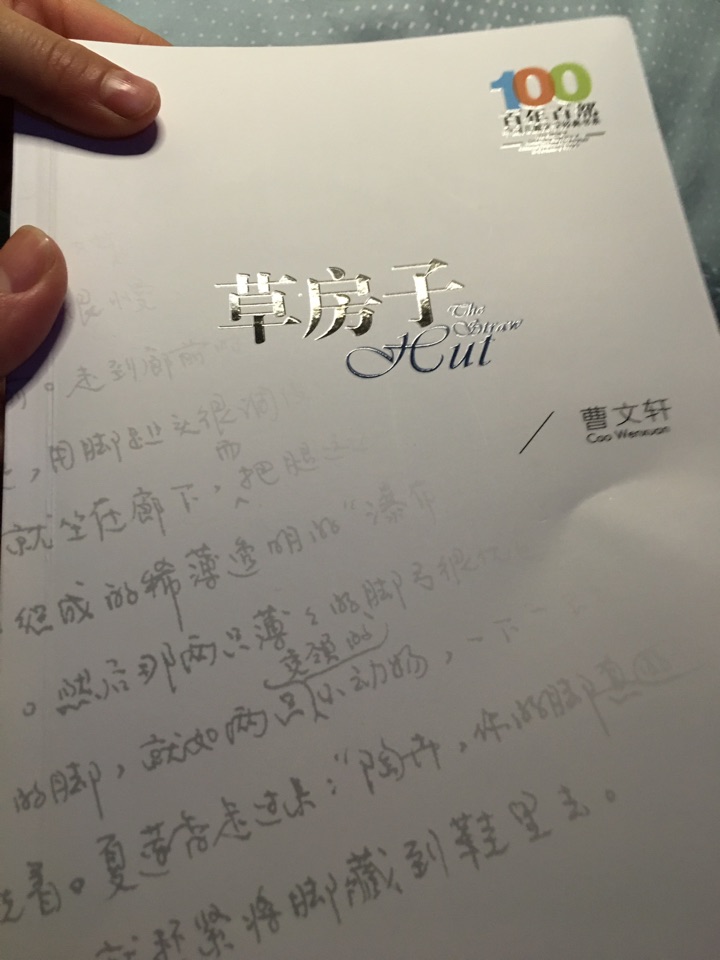 100
百年百部
草房子
The Straw
Hut
曹文轩
Cao Wenxuan
很慢
。走到廊前
，用脚是
而
就坐在廊下，把腿
组成的稀薄透明的“瀑布
。然后那两只薄薄的脚弓很
交颈的
的脚，就如两只小动物，一下一
着。夏莲香走过来：“陶卉，你的脚真
就赶紧将脚藏到鞋里去。